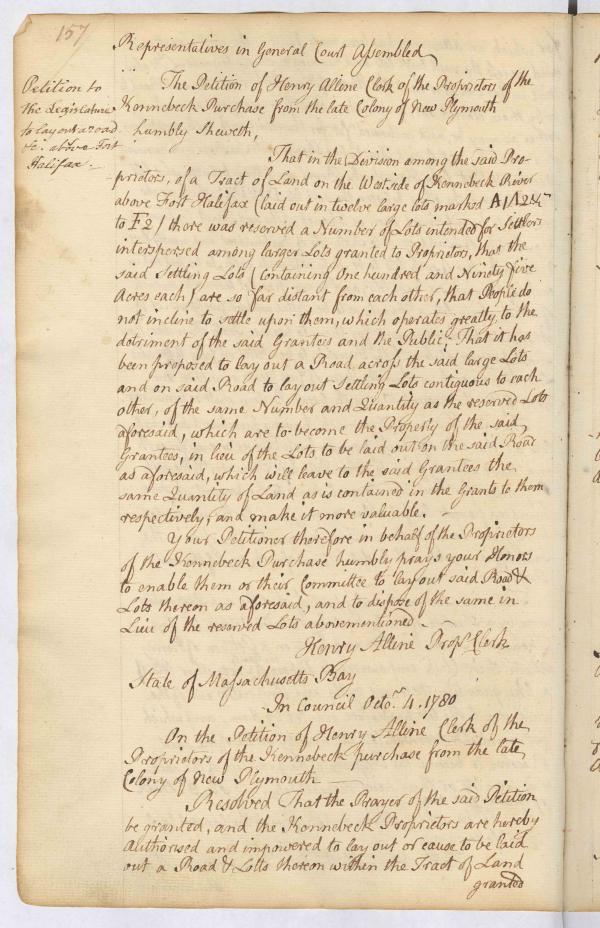 157
Representatives in General Court Assembled
Petition to
the Legislature
to lay out a road
&c. above Fort
Halifax.-
The Petition of Henry Alline Clerk of the Proprietors of the
Kennebeck Purchase from the late Colony of New Plymouth
humbly Sheweth,
That in the Division among the said Pro-
prietors, of a Tract of Land on the West side of Kennebeck River
above Fort Halifax (laid out in twelve large lots marked
to F2/ there was reserved a Number of Lots intended for Settlers
interspersed among larger Lots granted to Proprietors, that the
said Settling Lots (Containing One hundred and Ninety five
Acres each/ are so far distant from each other, that People do
not incline to settle upon them, which operates greatly to the
detriment of the said Grantees and the Public. That it has
been proposed to lay out a Road across the said large Lots
and on said Road to lay out Settling Lots contiguous to each
other, of the same Number and Quantity as the reserved Lots
aforesaid, which are to become the Property of the said
Grantees, in lieu of the Lots to be laid out on the said Road
as aforesaid, which will leave to the said Grantees the
same Quantity of Land as is contained in the Grants to them
respectively, and make it more valuable. -
Your Petitioner therefore in behalf of the Proprietors
of the Kennebeck Purchase humbly prays your Honors
to enable them or their Committee to lay out said Road &
Lots thereon as aforesaid, and to dispose of the same in
Lieu of the reserved Lots abovementioned -
Henry Alline Props. Clerk
State of Massachusetts Bay
In Council Octor. 4. 1780
On the Petition of Henry Alline Clerk of the
Proprietors of the Kennebeck purchase from the late
Colony of New Plymouth
Resolved That the Prayer of the said Petition
be granted, and the Kennebeck Proprietors are hereby
Authorised and impowered to lay out or cause to be laid
out a Road & Lotts thereon within the Tract of Land
granted